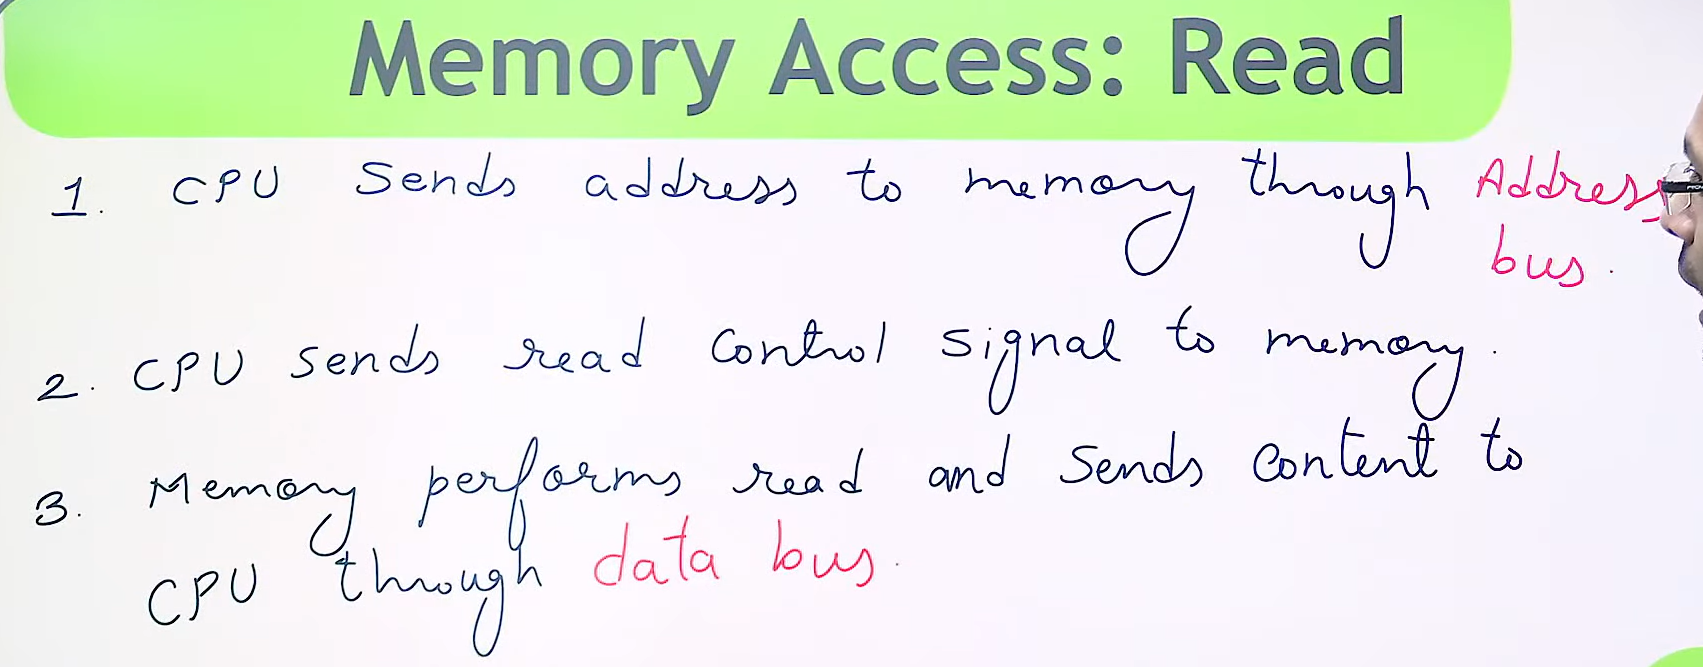 Memory Access: Read
1. CPU sends address to memory through Address
bus.
2. CPU sends read control signal to memory.
3. Memory performs read and sends content to
CPU through data bus.